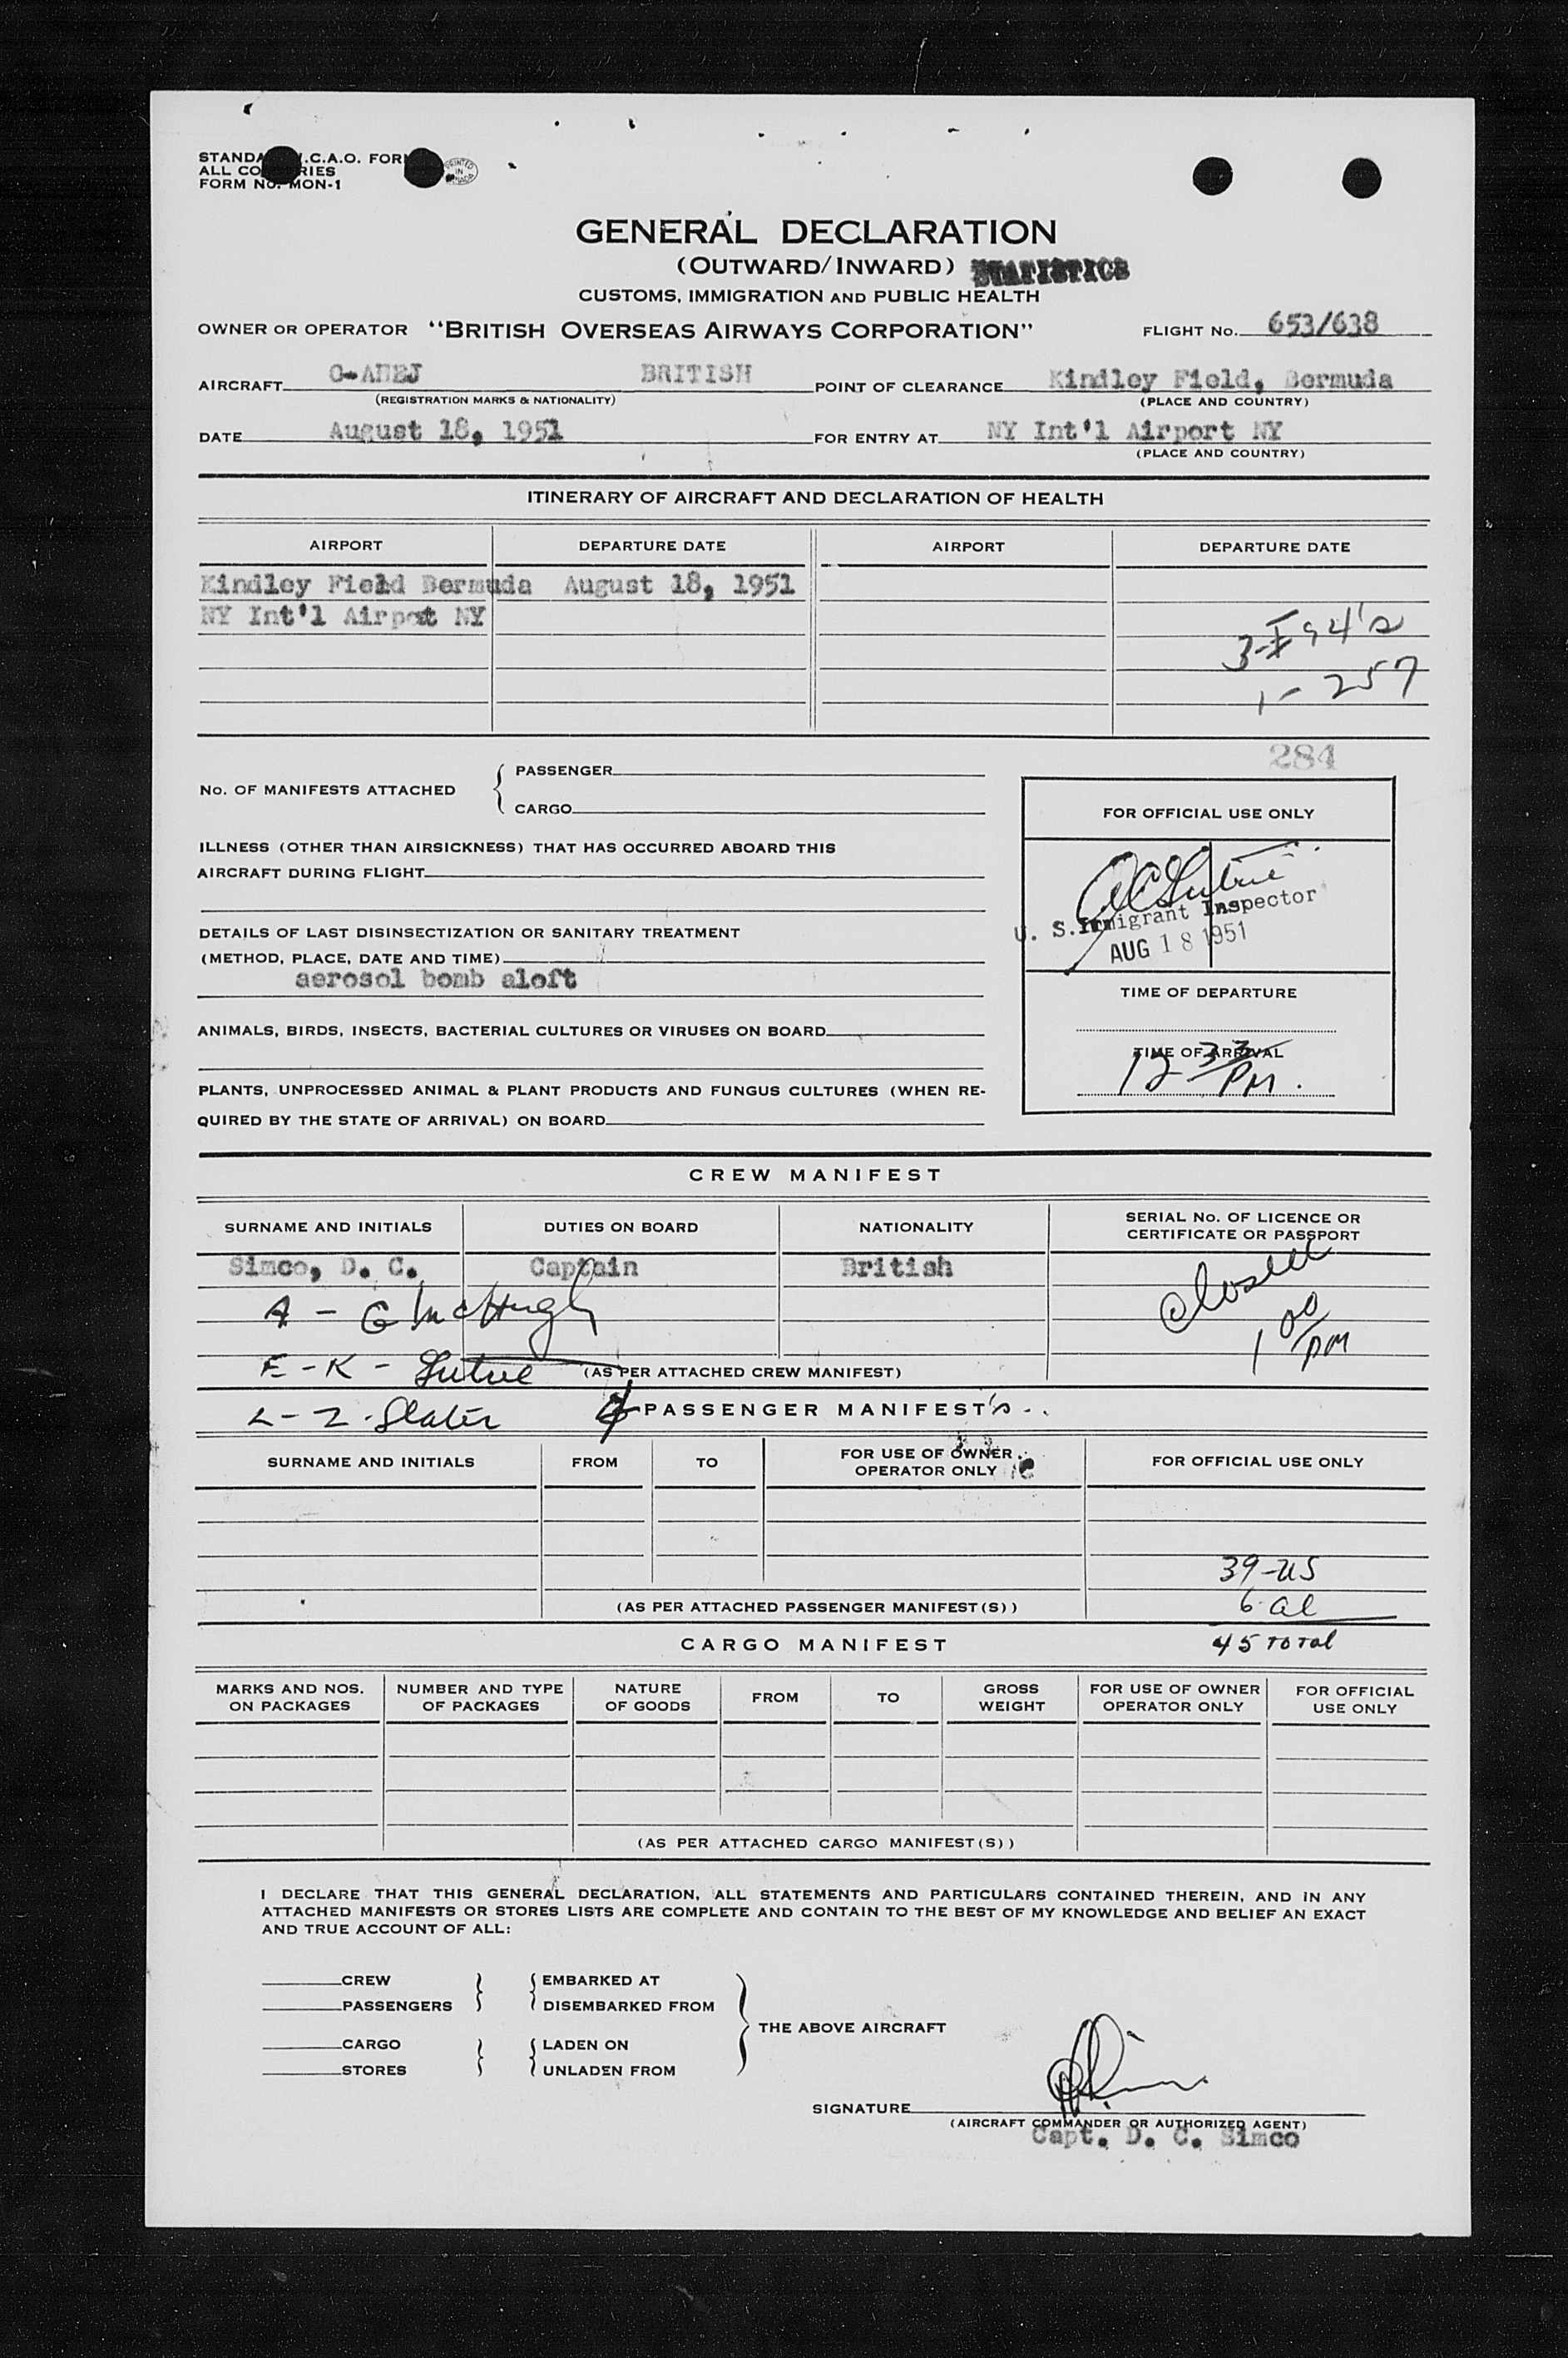 STANDA .C.A.O. FOR
ALL CO RIES
FORM No. MON-1
PRINTED IN CANADA
GENERAL DECLARATION
(OUTWARD/INWARD) STATISTICS
CUSTOMS, IMMIGRATION AND PUBLIC HEALTH
OWNER OR OPERATOR "BRITISH OVERSEAS AIRWAYS CORPORATION" FLIGHT No. 653/638
AIRCRAFT G-AHEJ BRITISH POINT OF CLEARANCE Kindley Field, Bermuda
(REGISTRATION MARKS & NATIONALITY) (PLACE AND COUNTRY)
DATE August 18, 1951 FOR ENTRY AT NY Int'l Airport NY
(PLACE AND COUNTRY)
ITINERARY OF AIRCRAFT AND DECLARATION OF HEALTH
AIRPORT DEPARTURE DATE AIRPORT DEPARTURE DATE
Kindley Field Bermuda August 18, 1951
NY Int'l Airpot NY
3-I 94's
1-257
284
No. OF MANIFESTS ATTACHED { PASSENGER
CARGO
FOR OFFICIAL USE ONLY
ILLNESS (OTHER THAN AIRSICKNESS) THAT HAS OCCURRED ABOARD THIS
AIRCRAFT DURING FLIGHT
U. S. Immigrant Inspector
AUG 18 1951
DETAILS OF LAST DISINSECTIZATION OR SANITARY TREATMENT
(METHOD, PLACE, DATE AND TIME)
aerosol bomb aloft
TIME OF DEPARTURE
ANIMALS, BIRDS, INSECTS, BACTERIAL CULTURES OR VIRUSES ON BOARD
TIME OF ARRIVAL
12 33 PM.
PLANTS, UNPROCESSED ANIMAL & PLANT PRODUCTS AND FUNGUS CULTURES (WHEN RE-
QUIRED BY THE STATE OF ARRIVAL) ON BOARD
CREW MANIFEST
SURNAME AND INITIALS DUTIES ON BOARD NATIONALITY SERIAL No. OF LICENCE OR
CERTIFICATE OR PASSPORT
Simco, D. C. Captain British
closed
A - G McHugh
1 00 PM
E-K- (AS PER ATTACHED CREW MANIFEST)
L-Z. Slater PASSENGER MANIFEST's
SURNAME AND INITIALS FROM TO FOR USE OF OWNER
OPERATOR ONLY FOR OFFICIAL USE ONLY
39-US
6 al
(AS PER ATTACHED PASSENGER MANIFEST(S))
45 Total
CARGO MANIFEST
MARKS AND NOS.
ON PACKAGES NUMBER AND TYPE
OF PACKAGES NATURE
OF GOODS FROM TO GROSS
WEIGHT FOR USE OF OWNER
OPERATOR ONLY FOR OFFICIAL
USE ONLY
(AS PER ATTACHED CARGO MANIFEST(S))
I DECLARE THAT THIS GENERAL DECLARATION, ALL STATEMENTS AND PARTICULARS CONTAINED THEREIN, AND IN ANY
ATTACHED MANIFESTS OR STORES LISTS ARE COMPLETE AND CONTAIN TO THE BEST OF MY KNOWLEDGE AND BELIEF AN EXACT
AND TRUE ACCOUNT OF ALL:
CREW } { EMBARKED AT
PASSENGERS } { DISEMBARKED FROM
THE ABOVE AIRCRAFT
CARGO } { LADEN ON
STORES } { UNLADEN FROM
SIGNATURE
(AIRCRAFT COMMANDER OR AUTHORIZED AGENT)
Capt. D. C. Simco